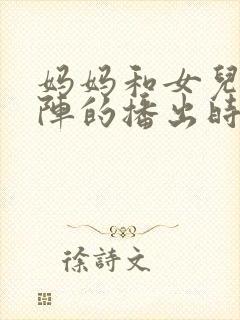 妈妈和女兒
陣的播出時
徐詩文